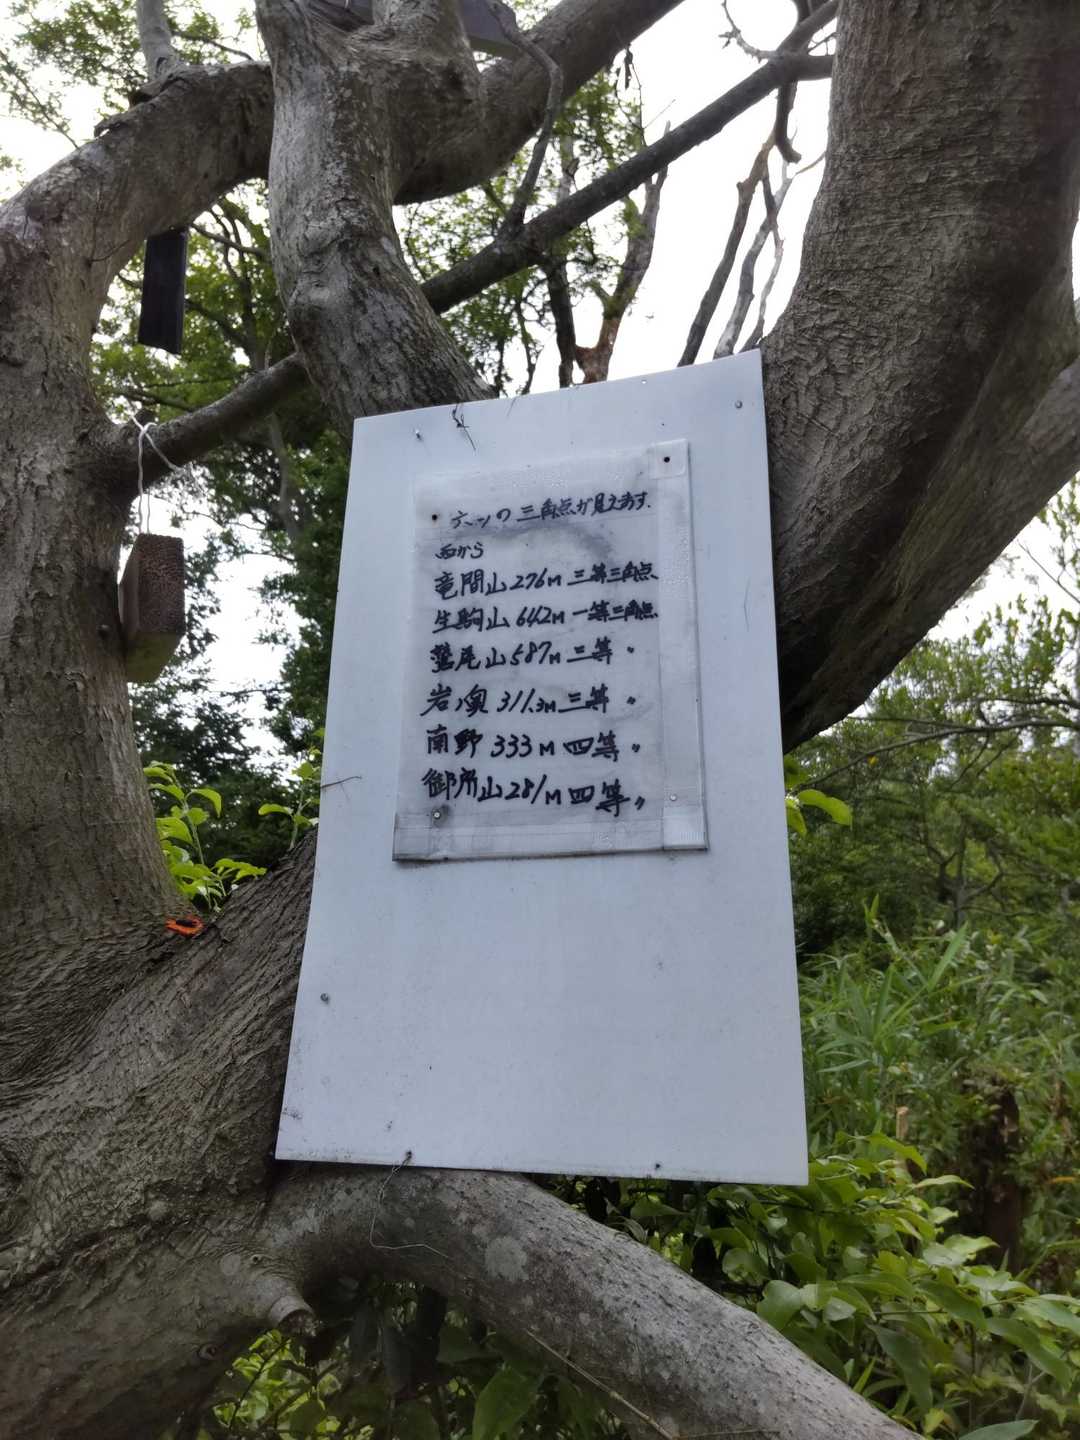 六ツの三角点が見えます.
西から
竜間山 276M 三等三角点
生駒山 642M 一等三角点
鷲尾山 587M 三等 〃
岩ノ奥 311.3M 三等 〃
南野 333M 四等 〃
御所山 281M 四等 〃